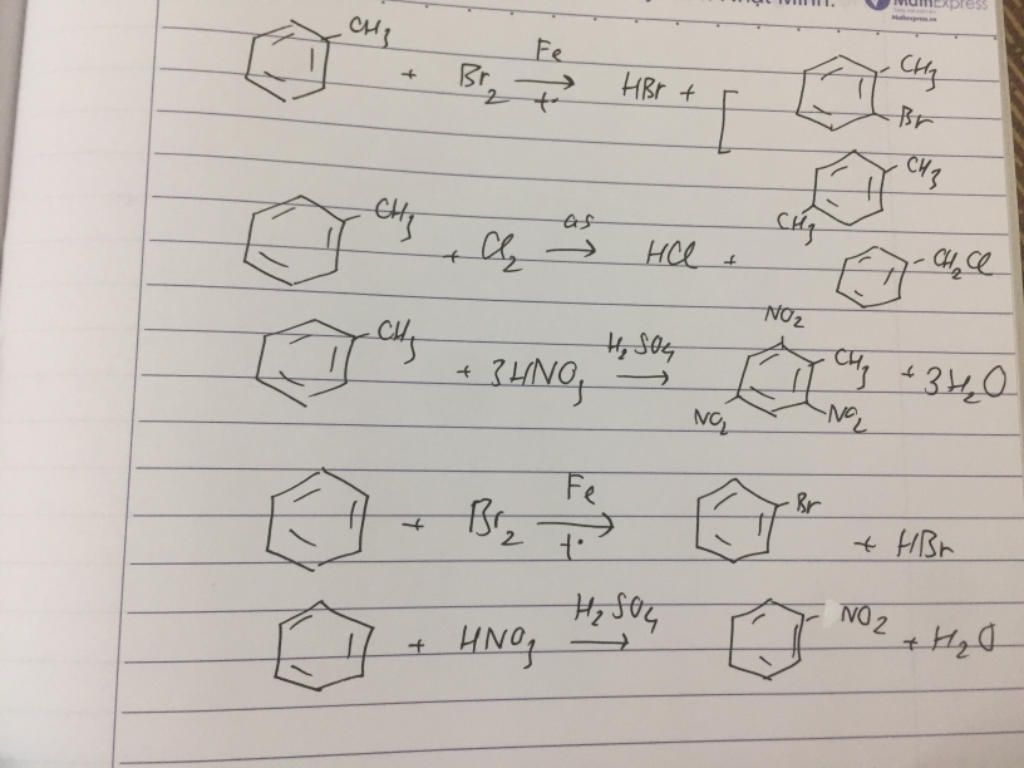 Nhật Minh.
MathExpress
Mathexpress.vn
CH3 + Br2 Fe t° → HBr + [ CH3 Br
CH3 CH3
CH3 + Cl2 as → HCl + CH2Cl
CH3 + 3HNO3 H2SO4 → NO2 CH3 NO2 NO2 + 3H2O
+ Br2 Fe t° → Br + HBr
+ HNO3 H2SO4 → NO2 + H2O